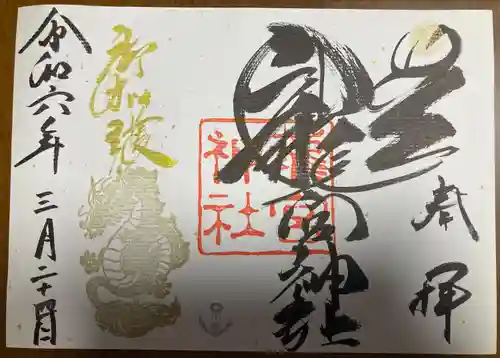 奉拝
龍宮神社
龍宮
神社
御加護
令和六年 三月二十四日